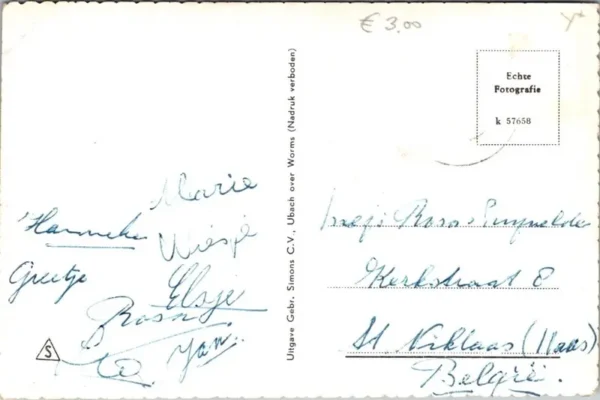 € 3,00
Echte
Fotografie
k 57658
Uitgave Gebr. Simons C.V., Ubach over Worms (Nadruk verboden)
Marie
Hanneke
Wiesje
Greetje
Elsje
Jan.
S
Kerkstraat 8
St Niklaas (Waas)
België.